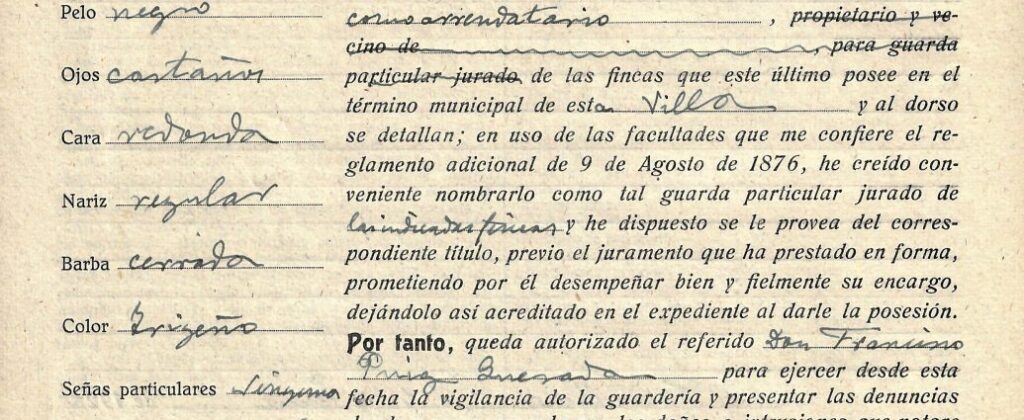 Pelo negro
Ojos castaños
Cara redonda
Nariz regular
Barba cerrada
Color Trigeño
Señas particulares Ninguna
como arrendatario, propietario y ve-
cino de , para guarda
particular jurado de las fincas que este último posee en el
término municipal de esta Villa y al dorso
se detallan; en uso de las facultades que me confiere el re-
glamento adicional de 9 de Agosto de 1876, he creído con-
veniente nombrarlo como tal guarda particular jurado de
las indicadas fincas y he dispuesto se le provea del corres-
pondiente título, previo el juramento que ha prestado en forma,
prometiendo por él desempeñar bien y fielmente su encargo,
dejándolo así acreditado en el expediente al darle la posesión.
Por tanto, queda autorizado el referido Don Francisco
Puig Quesada para ejercer desde esta
fecha la vigilancia de la guardería y presentar las denuncias